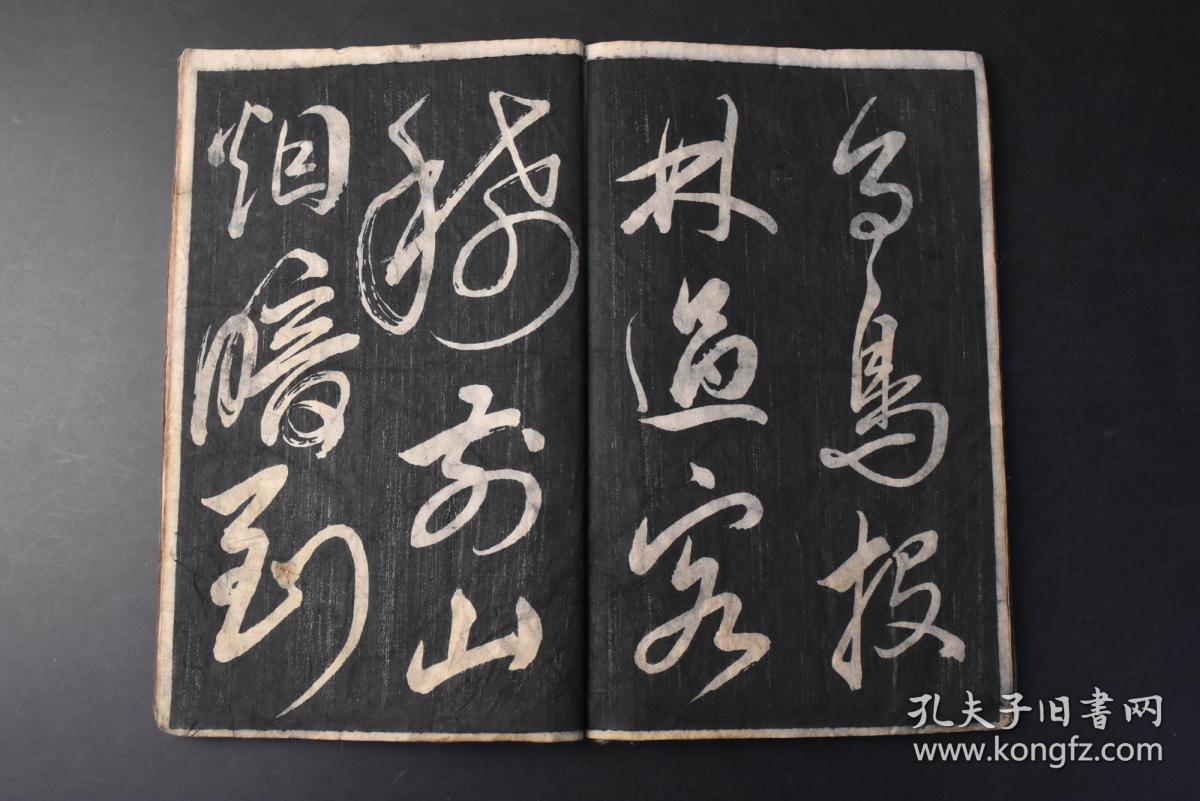 乌鳥投
林過客
稀前山
烟暗到
孔夫子旧書网
www.kongfz.com